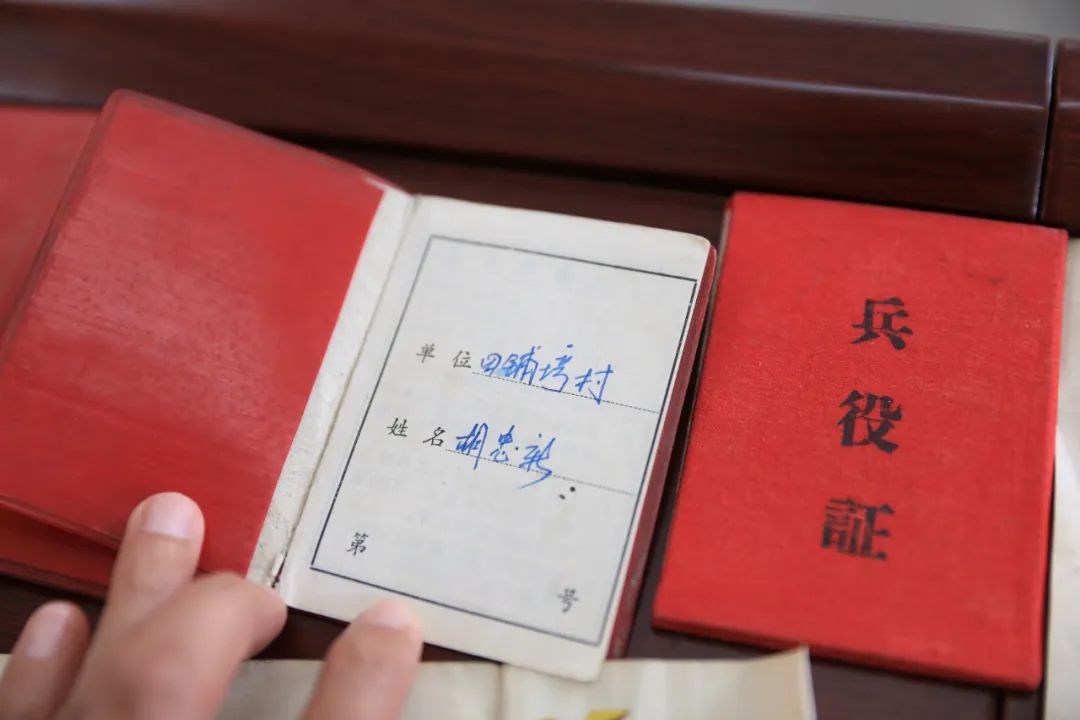 单位 田铺垮村
姓名 胡忠新
第 号
兵役証